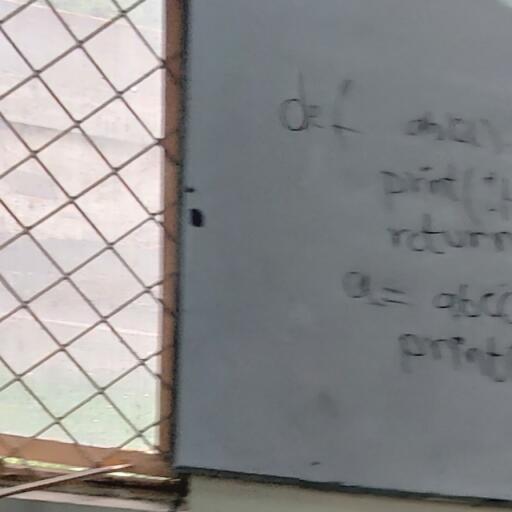 def abc(a):
print(
return
a = abc(
print(